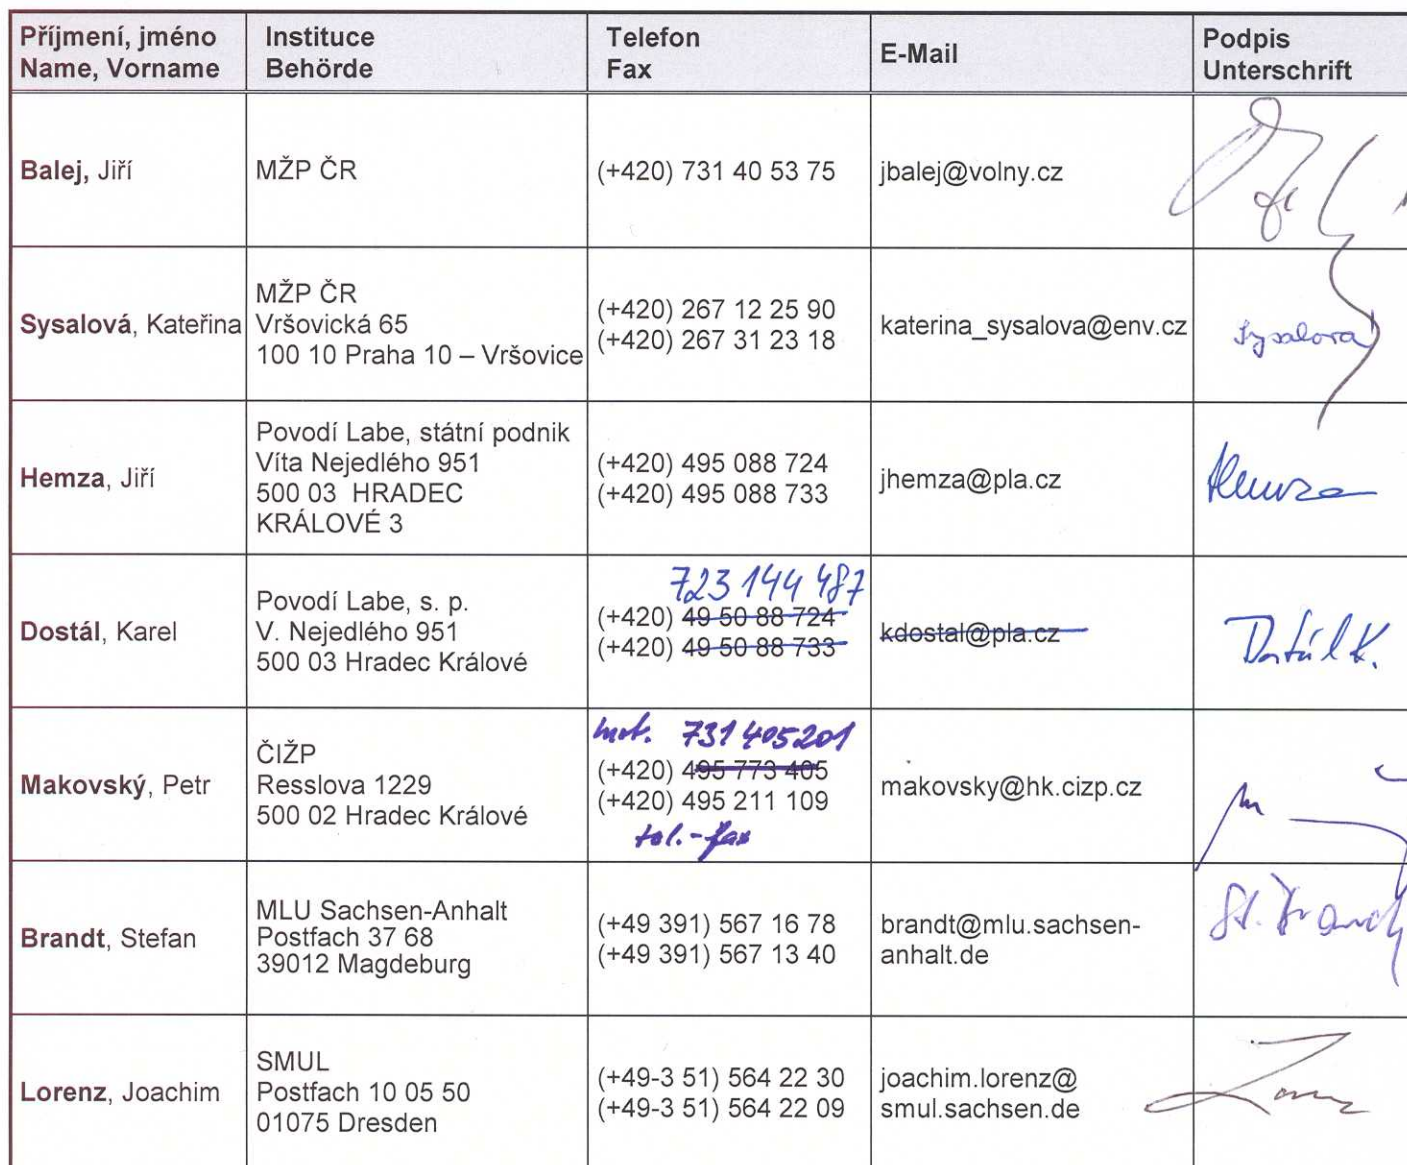 Příjmení, jméno
Name, Vorname
Instituce
Behörde
Telefon
Fax
E-Mail
Podpis
Unterschrift
Balej, Jiří
MŽP ČR
(+420) 731 40 53 75
jbalej@volny.cz
Sysalová, Kateřina
MŽP ČR
Vršovická 65
100 10 Praha 10 – Vršovice
(+420) 267 12 25 90
(+420) 267 31 23 18
katerina_sysalova@env.cz
Sysalová
Hemza, Jiří
Povodí Labe, státní podnik
Víta Nejedlého 951
500 03 HRADEC
KRÁLOVÉ 3
(+420) 495 088 724
(+420) 495 088 733
jhemza@pla.cz
Hemza
Dostál, Karel
Povodí Labe, s. p.
V. Nejedlého 951
500 03 Hradec Králové
723 144 487
(+420) 49 50 88 724
(+420) 49 50 88 733
kdostal@pla.cz
Dostál K.
Makovský, Petr
ČIŽP
Resslova 1229
500 02 Hradec Králové
731 405 201
(+420) 495 773 405
(+420) 495 211 109
tel.-fax
makovsky@hk.cizp.cz
Brandt, Stefan
MLU Sachsen-Anhalt
Postfach 37 68
39012 Magdeburg
(+49 391) 567 16 78
(+49 391) 567 13 40
brandt@mlu.sachsen-
anhalt.de
St. Brandt
Lorenz, Joachim
SMUL
Postfach 10 05 50
01075 Dresden
(+49-3 51) 564 22 30
(+49-3 51) 564 22 09
joachim.lorenz@
smul.sachsen.de